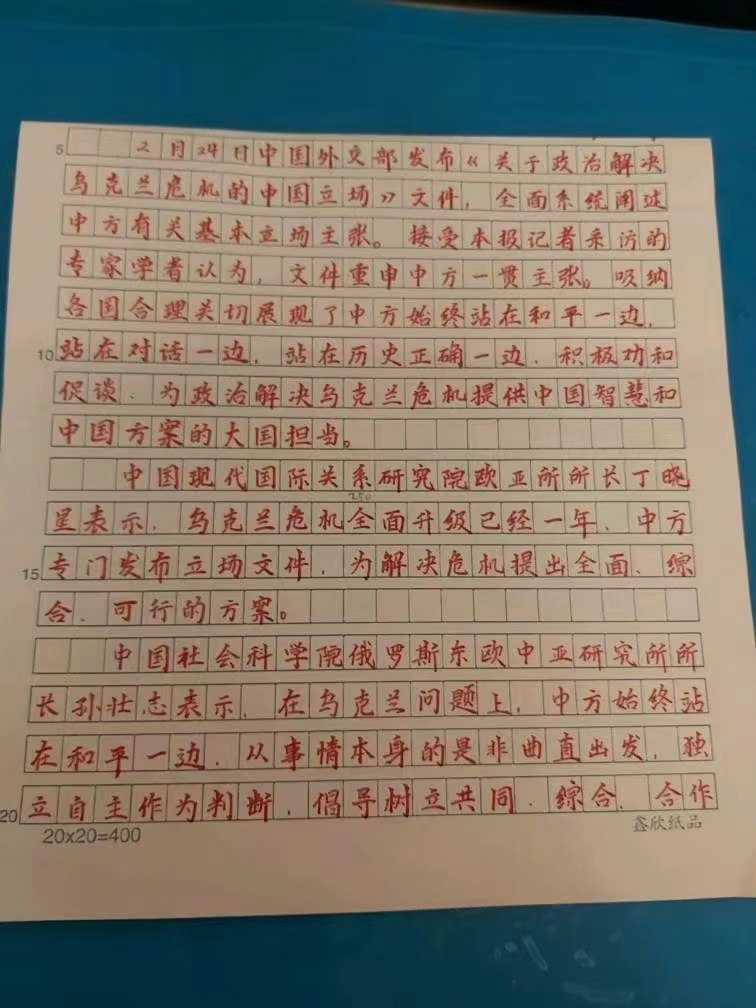 5 2月24日中国外交部发布《关于政治解决
乌克兰危机的中国立场》文件，全面系统阐述
中方有关基本立场主张。接受本报记者采访的
专家学者认为，文件重申中方一贯主张。吸纳
各国合理关切展现了中方始终站在和平一边，
10 站在对话一边，站在历史正确一边，积极劝和
促谈、为政治解决乌克兰危机提供中国智慧和
中国方案的大国担当。
中国现代国际关系研究院欧亚所所长丁晓
250
星表示，乌克兰危机全面升级已经一年、中方
15 专门发布立场文件，为解决危机提出全面、综
合、可行的方案。
中国社会科学院俄罗斯东欧中亚研究所所
长孙壮志表示、在乌克兰问题上，中方始终站
在和平一边，从事情本身的是非曲直出发，独
20 立自主作为判断，倡导树立共同、综合、合作
20x20=400 鑫欣纸品